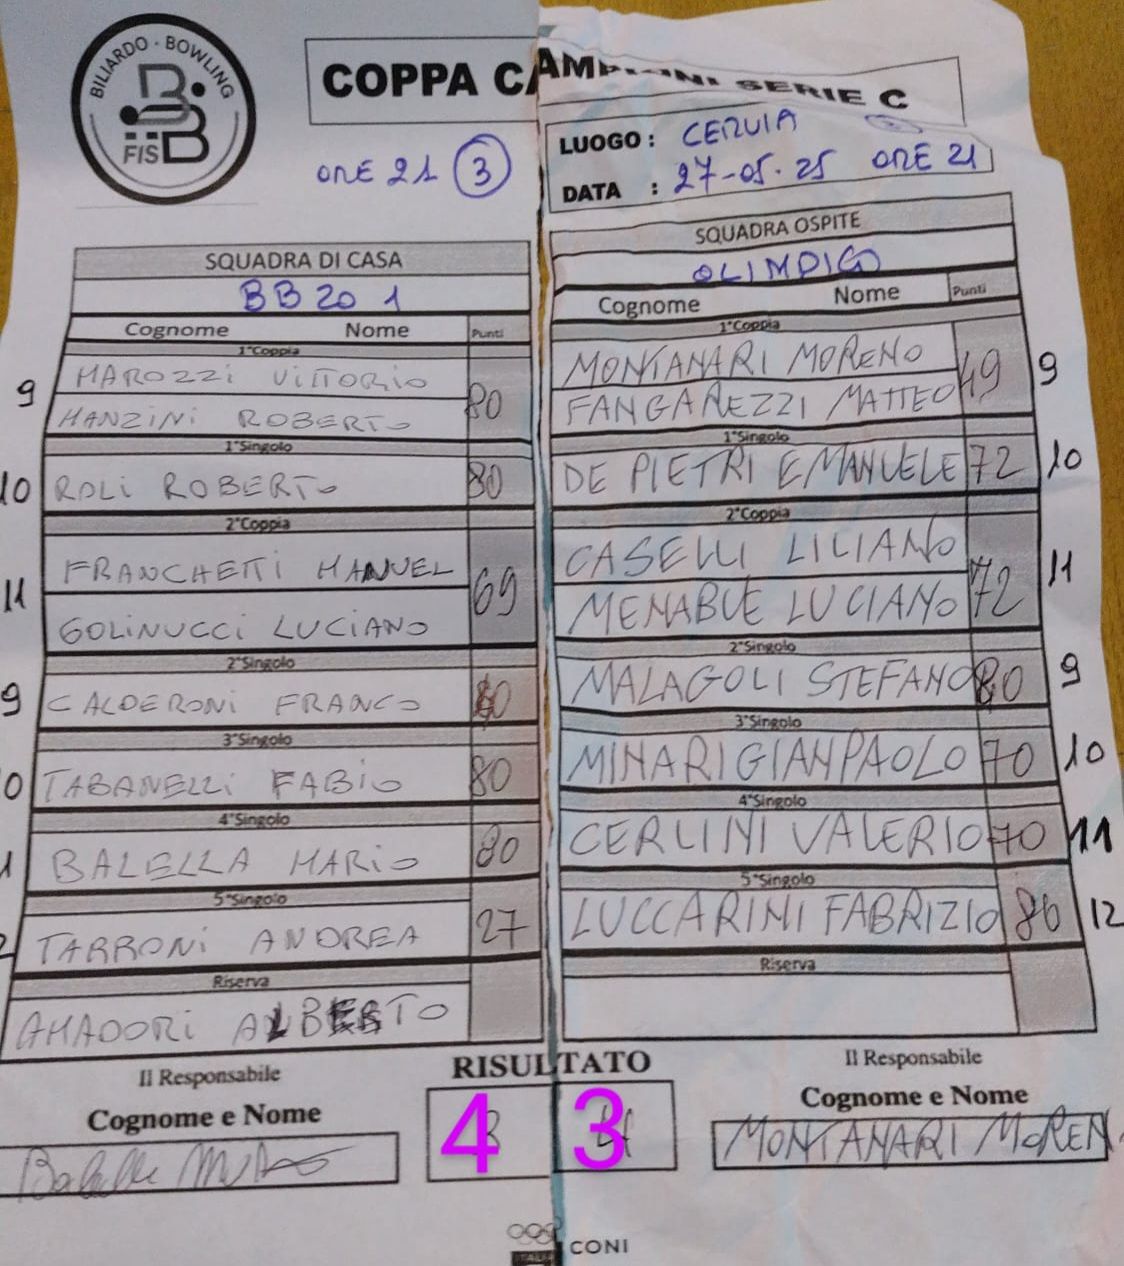 BILIARDO - BOWLING
FISBB
COPPA CAMPIONI SERIE C
ORE 21 3
LUOGO : CERVIA
DATA : 27-05-25 ORE 21
SQUADRA DI CASA
BB20 1
Cognome Nome Punti
1°Coppia
9 MAROZZI VITTORIO 80
MANZINI ROBERTO
1°Singolo
10 ROLI ROBERTO 80
2°Coppia
FRANCHETTI MANUEL 69
11 GOLINUCCI LUCIANO
2°Singolo
9 CALDERONI FRANCO
3°Singolo
0 TABANELLI FABIO 80
4°Singolo
1 BALELLA MARIO 80
5°Singolo
2 TARRONI ANDREA 27
Riserva
AMADORI ALBERTO
Il Responsabile
Cognome e Nome
SQUADRA OSPITE
OLIMPICO
Cognome Nome Punti
1°Coppia
MONTANARI MORENO 49 9
FANGAREZZI MATTEO
1°Singolo
DE PIETRI EMANUELE 72 10
2°Coppia
CASELLI LILIANO 72 11
MENABUE LUCIANO
2°Singolo
MALAGOLI STEFANO 80 9
3°Singolo
MINARI GIANPAOLO 70 10
4°Singolo
CERLINI VALERIO 70 11
5°Singolo
LUCCARINI FABRIZIO 86 12
Riserva
Il Responsabile
Cognome e Nome
MONTANARI MOREN
RISULTATO
4 3
ITALIA CONI